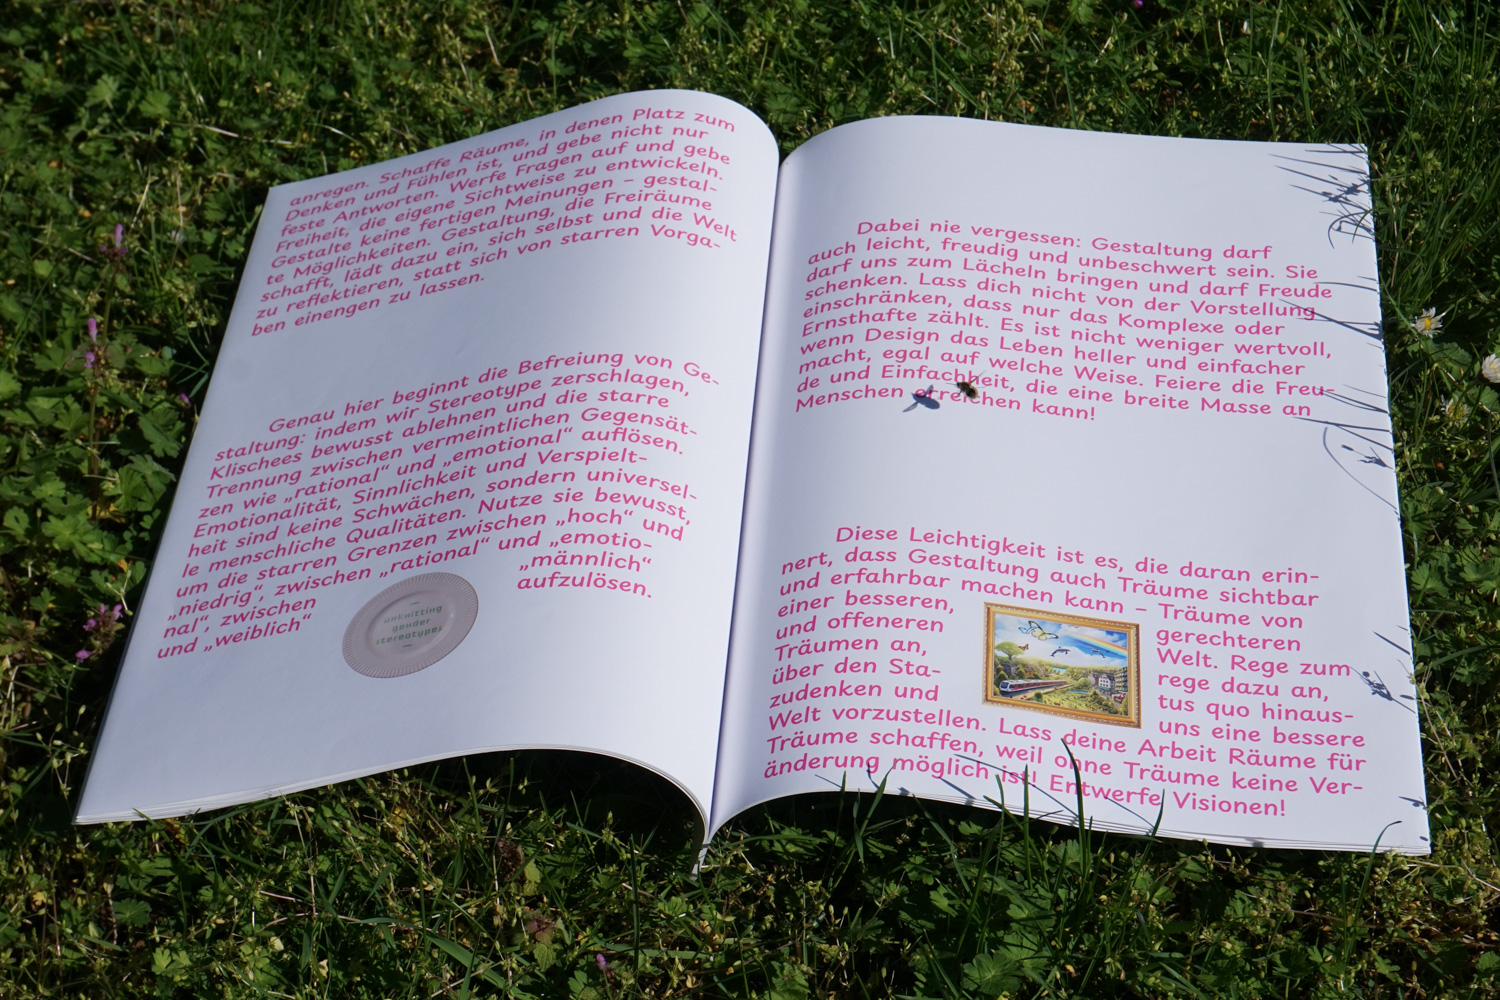 anregen. Schaffe Räume, in denen Platz zum
Denken und Fühlen ist, und gebe nicht nur
feste Antworten. Werfe Fragen auf und gebe
Freiheit, die eigene Sichtweise zu entwickeln.
Gestalte keine fertigen Meinungen – gestal-
te Möglichkeiten. Gestaltung, die Freiräume
schafft, lädt dazu ein, sich selbst und die Welt
zu reflektieren, statt sich von starren Vorga-
ben einengen zu lassen.
Genau hier beginnt die Befreiung von Ge-
staltung: indem wir Stereotype zerschlagen,
Klischees bewusst ablehnen und die starre
Trennung zwischen vermeintlichen Gegensät-
zen wie „rational“ und „emotional“ auflösen.
Emotionalität, Sinnlichkeit und Verspielt-
heit sind keine Schwächen, sondern universel-
le menschliche Qualitäten. Nutze sie bewusst,
um die starren Grenzen zwischen „hoch“ und
„niedrig“, zwischen „rational“ und „emotio-
nal“, zwischen „männlich“
und „weiblich“ aufzulösen.
unknitting
gender
stereotypes
Dabei nie vergessen: Gestaltung darf
auch leicht, freudig und unbeschwert sein. Sie
darf uns zum Lächeln bringen und darf Freude
schenken. Lass dich nicht von der Vorstellung
einschränken, dass nur das Komplexe oder
Ernsthafte zählt. Es ist nicht weniger wertvoll,
wenn Design das Leben heller und einfacher
macht, egal auf welche Weise. Feiere die Freu-
de und Einfachheit, die eine breite Masse an
Menschen erreichen kann!
Diese Leichtigkeit ist es, die daran erin-
nert, dass Gestaltung auch Träume sichtbar
und erfahrbar machen kann – Träume von
einer besseren, gerechteren
und offeneren Welt. Rege zum
Träumen an, rege dazu an,
über den Sta- tus quo hinaus-
zudenken und uns eine bessere
Welt vorzustellen. Lass deine Arbeit Räume für
Träume schaffen, weil ohne Träume keine Ver-
änderung möglich ist! Entwerfe Visionen!